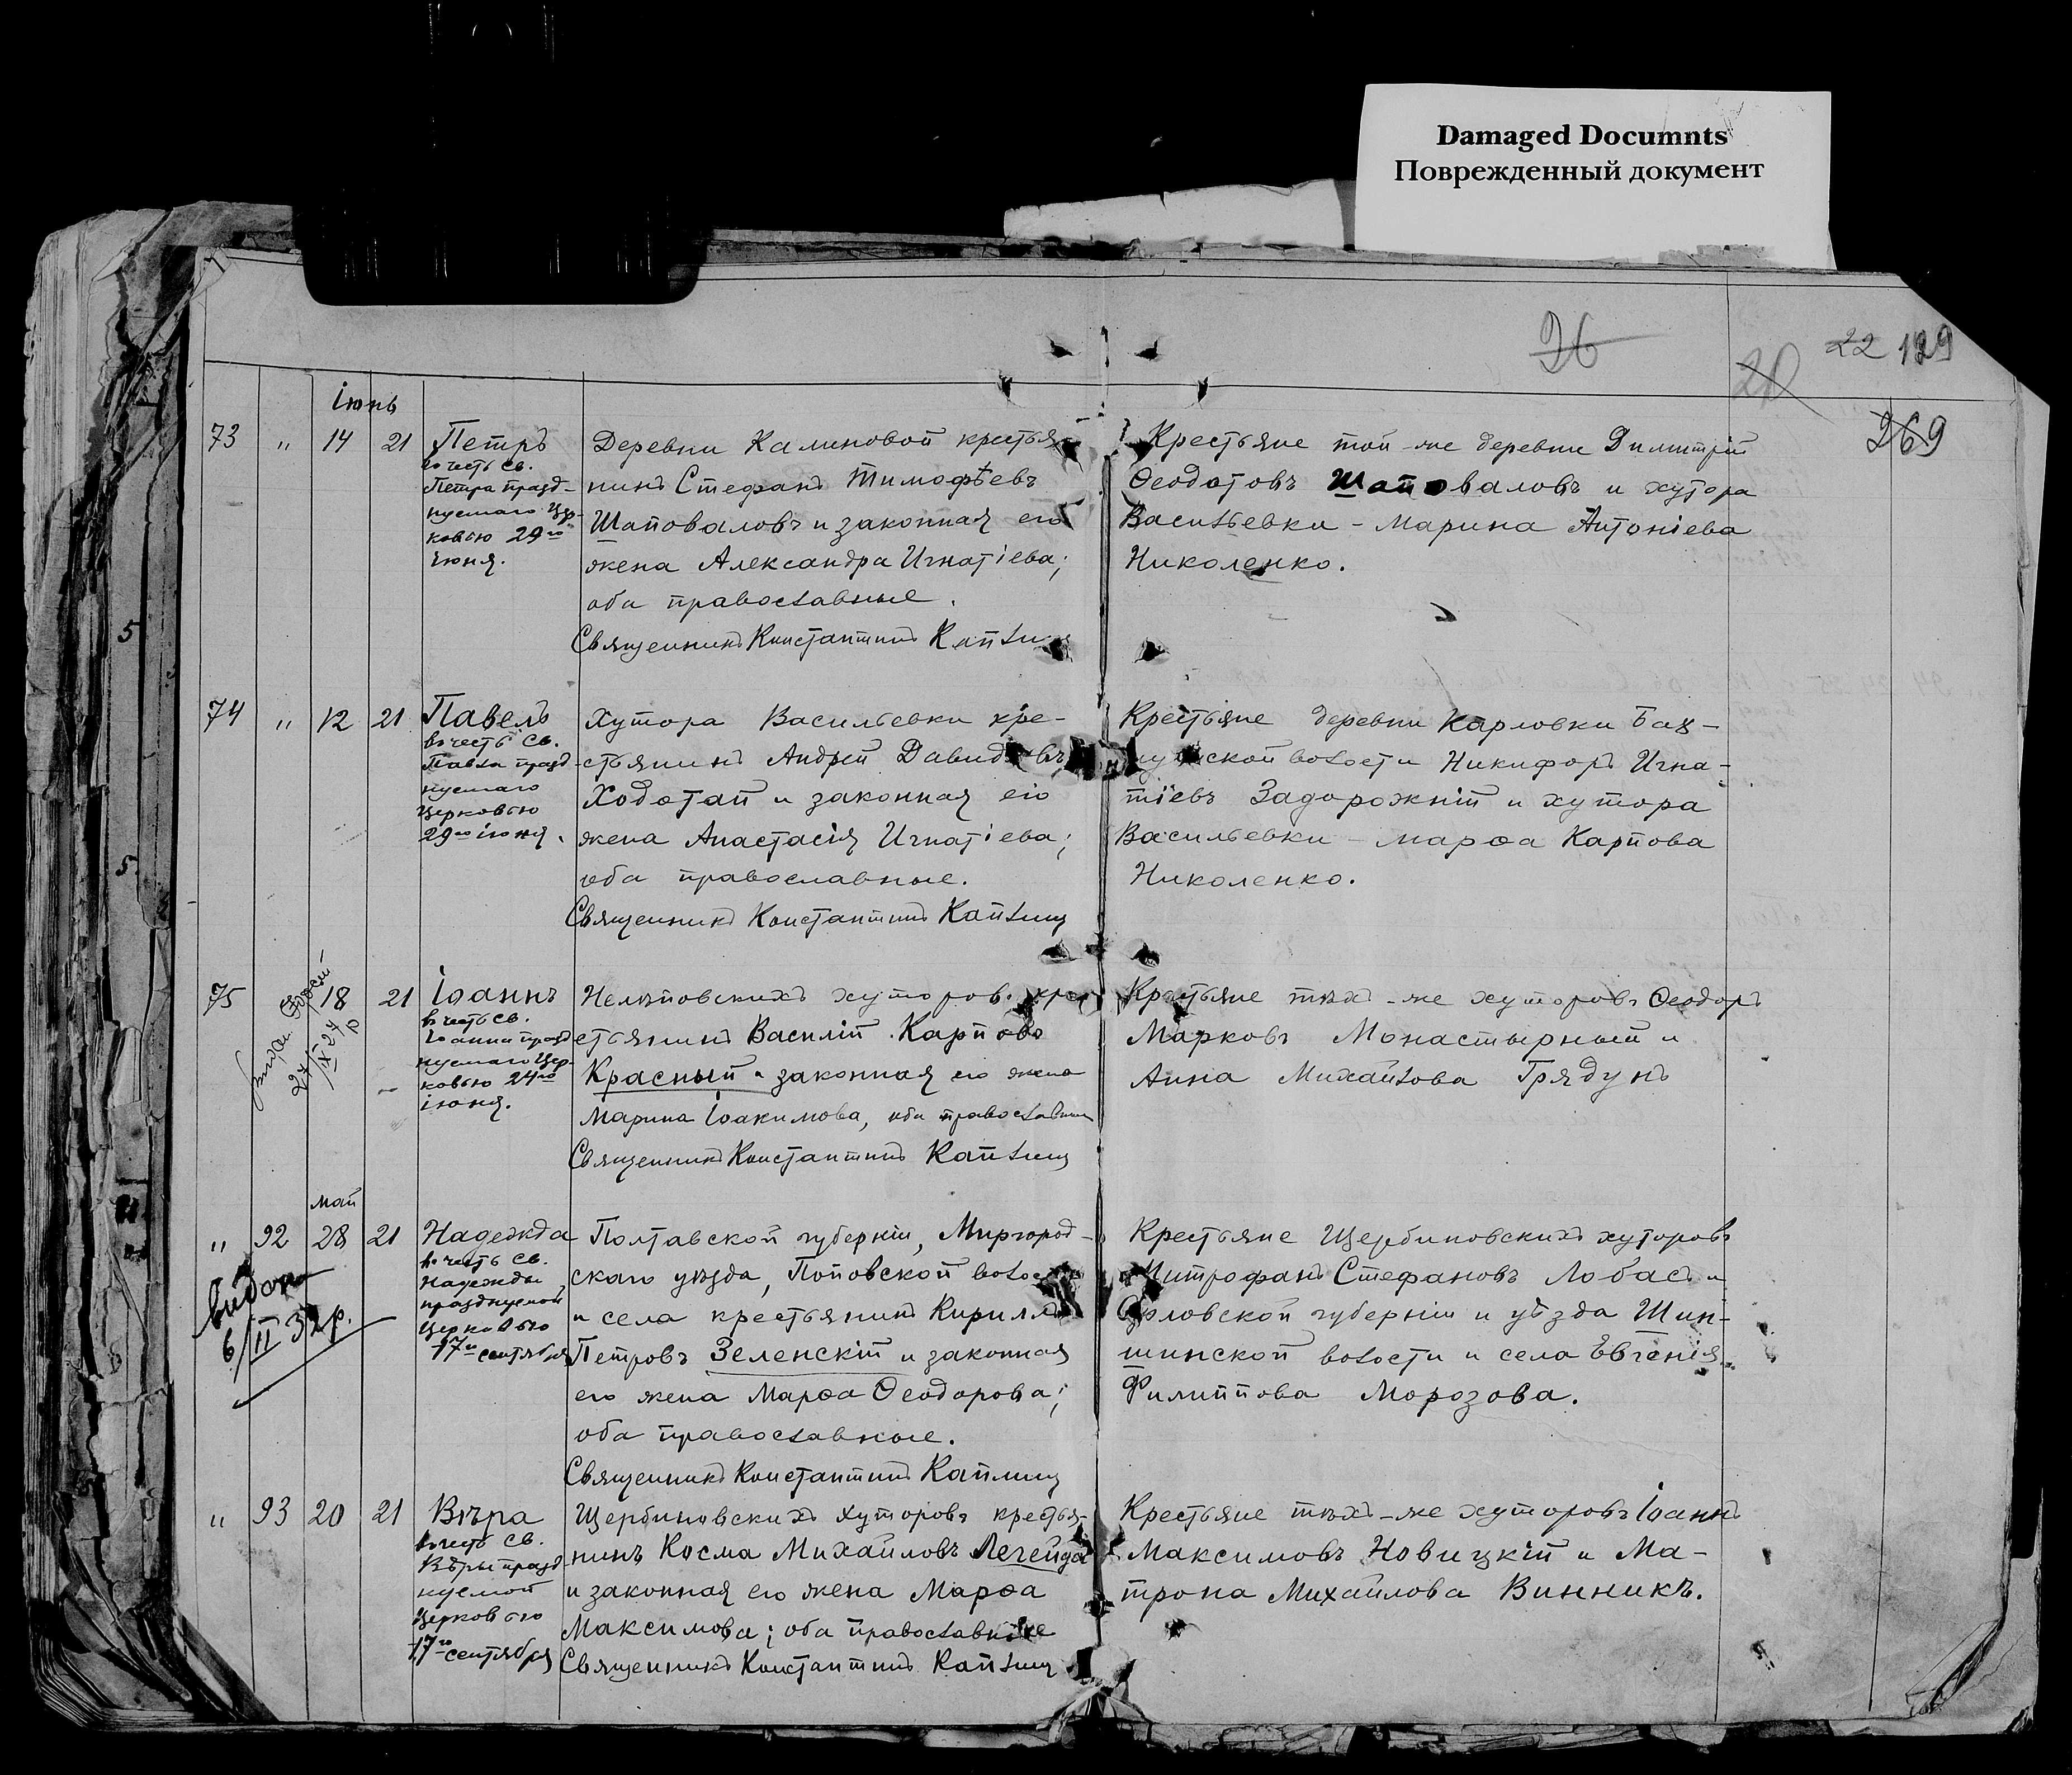 Damaged Documnts
Поврежденный документ
26
20
22 129
269
іюнь
73 " 14 21 Петръ
въ честь св.
Петра празд-
нуемаго Цер-
ковью 29го
іюня.
Деревни Калиновой крестья-
нинъ Стефанъ Тимофѣевъ
Шаповаловъ и законная его
жена Александра Игнатіева;
оба православные.
Священникъ Константинъ Каплин
Крестьяне той-же деревни Димитрій
Ѳеодотовъ Шаповаловъ и хутора
Васильевки - Марина Антоніева
Николенко.
74 " 12 21 Павелъ
въ честь св.
Павла празд-
нуемаго
Церковью
29го іюня.
Хутора Васильевки кре-
стьянинъ Андрей Давидовъ
Ходотай и законная его
жена Анастасія Игнатіева;
оба православные.
Священникъ Константинъ Каплинъ
Крестьяне деревни Карловки Бах-
мутской волости Никифоръ Игна-
тіевъ Задорожній и хутора
Васильевки - Марѳа Карпова
Николенко.
75 18 21 Іоаннъ
27/IX 24 р
въ честь св.
Іоанна празд-
нуемаго Цер-
ковью 24го
іюня.
Нелѣповскихъ хуторовъ кре-
стьянинъ Василій Карповъ
Красный и законная его жена
Марина Іоакимова, оба православные
Священникъ Константинъ Каплинъ
Крестьяне тѣхъ-же хуторовъ Ѳеодоръ
Марковъ Монастырный и
Анна Михайлова Грядунъ
май
" 92 28 21 Надежда
видано
6/II 32 р.
въ честь св.
Надежды
празднуемой
Церковью
17го сентября
Полтавской губерніи, Миргород-
скаго уѣзда, Поповской волости
и села крестьянинъ Кириллъ
Петровъ Зеленскій и законная
его жена Марѳа Ѳеодорова;
оба православные.
Священникъ Константинъ Каплинъ
Крестьяне Щербиновскихъ хуторовъ
Митрофанъ Стефановъ Лобасъ и
Орловской губерніи и уѣзда Шип-
шинской волости и села Евгенія
Филиппова Морозова.
" 93 20 21 Вѣра
въ честь св.
Вѣры празд-
нуемой
Церковью
17го сентября
Щербиновскихъ хуторовъ крестья-
нинъ Косма Михайловъ Легейда
и законная его жена Марѳа
Максимова; оба православные
Священникъ Константинъ Каплинъ
Крестьяне тѣхъ-же хуторовъ Іоаннъ
Максимовъ Новицкій и Ма-
трона Михайлова Винникъ.